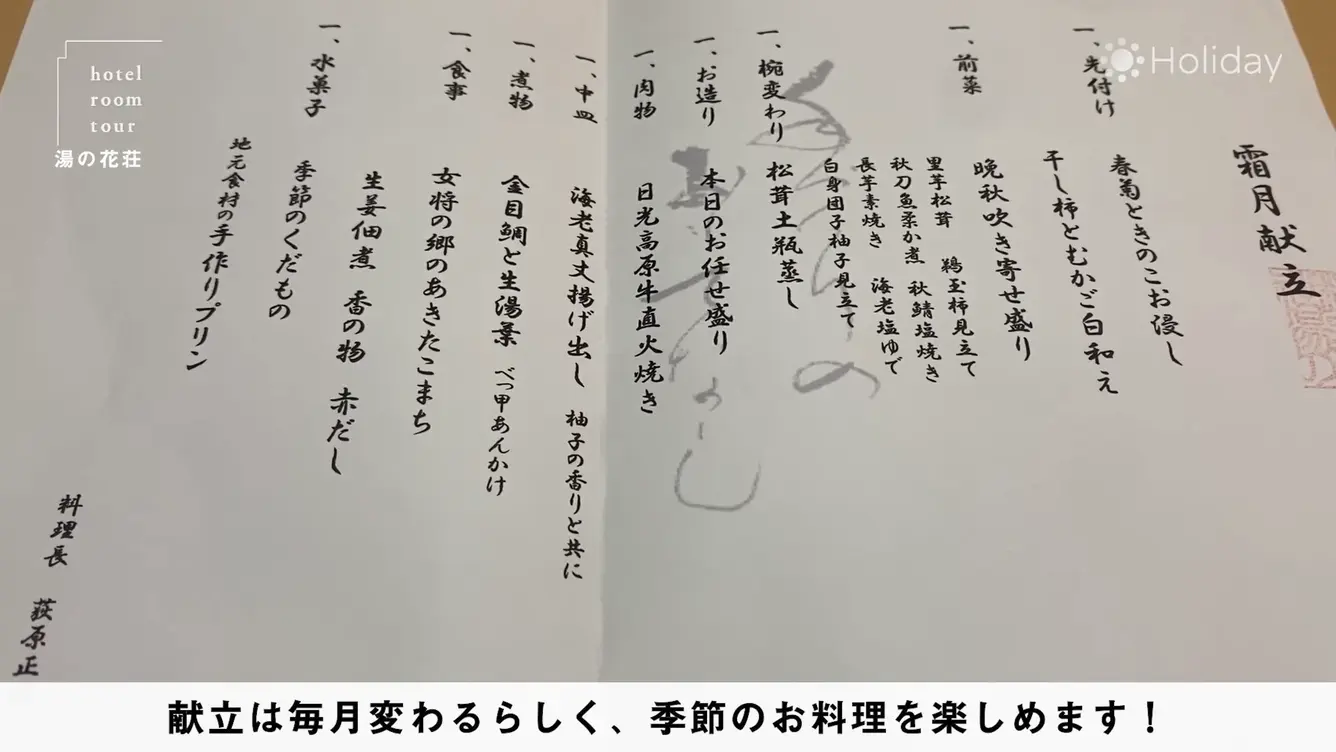 hotel
room
tour
湯の花荘
Holiday
霜月献立
一、先付け
春菊ときのこお浸し
干し柿とむかご白和え
一、前菜
晩秋吹き寄せ盛り
里芋松茸 鶉玉柿見立て
秋刀魚柔か煮 秋鯖塩焼き
長芋素焼き 海老塩ゆで
白身団子柚子見立て
一、椀変わり 松茸土瓶蒸し
一、お造り 本日のお任せ盛り
一、肉物 日光高原牛直火焼き
一、中皿 海老真丈揚げ出し 柚子の香りと共に
一、煮物 金目鯛と生湯葉 べっ甲あんかけ
一、食事 女将の郷のあきたこまち
生姜佃煮 香の物 赤だし
一、水菓子 季節のくだもの
地元食村の手作りプリン
料理長 荻原正
献立は毎月変わるらしく、季節のお料理を楽しめます！